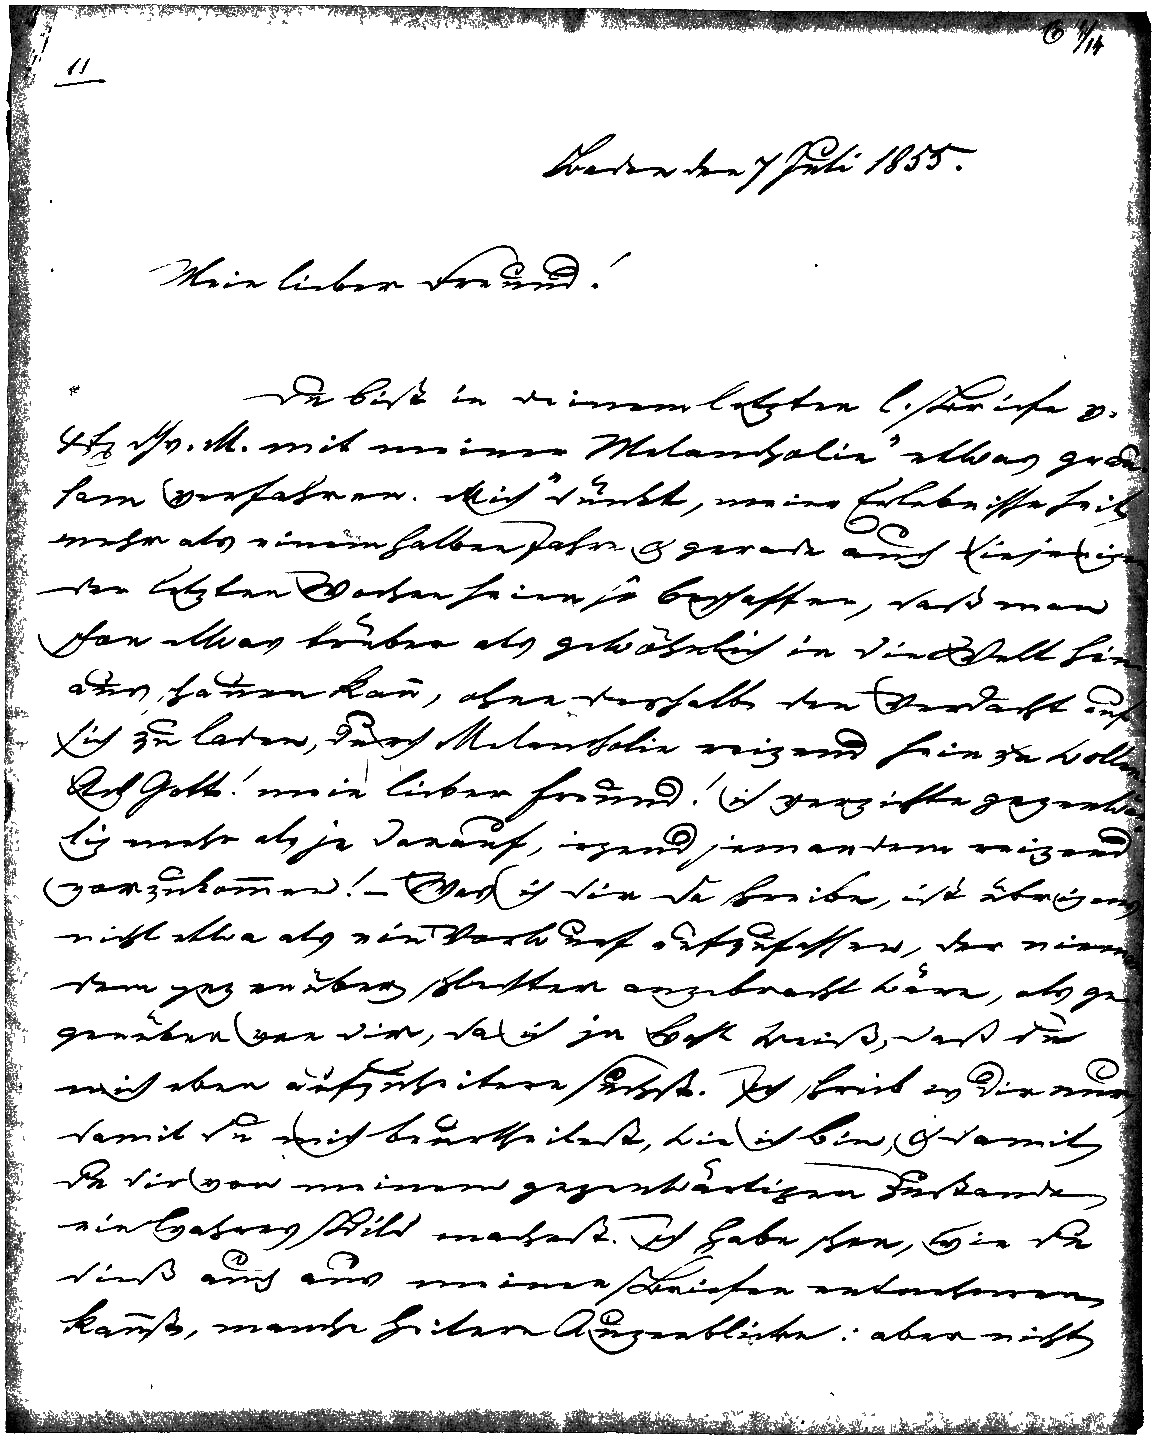 11
Baden den 7 Juli 1855.
Mein lieber Freund!
Du bist in deinem letzten l. Briefe v.
4t. ds. M. mit meiner "Melancholie" etwas grau-
sam verfahren. Mich dünkt, meine Erlebnisse seit
mehr als einem halben Jahre & gerade auch diejenigen
der letzten Wochen seien so beschaffen, daß man
schon etwas trüber als gewöhnlich in die Welt hin
aus schauen kann, ohne deshalb den Verdacht auf
sich zu laden, durch Melancholie reizend sein zu wollen.
Ach Gott! mein lieber Freund! ich verzichte gegenwär-
tig mehr als je darauf, irgend jemandem reizend
vorzukommen! – Was ich dir da schreibe, ist übrigens
nicht etwa als ein Vorwurf aufzufassen, der nieman
dem gegenüber schlechter angebracht wäre, als ge
genüber von dir, da ich ja wohl weiß, daß du
mich eben aufzuheitern suchst. Ich schreib es dir nur,
damit du mich beurtheilest, wie ich bin, & damit
du dir von meinem gegenwärtigen Zustande
ein wahres Bild machest. Ich habe schon, wie du
dieß auch aus meinen Briefen entnehmen
kannst, manche heitere Augenblicke: aber nicht